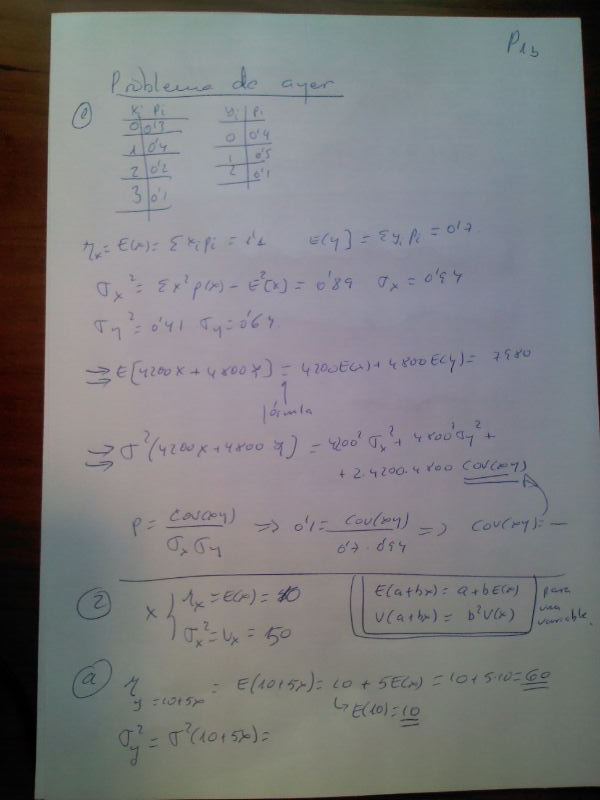 P1b
Problema de ayer
c
xi pi
0 0'3
1 0'4
2 0'2
3 0'1
yi pi
0 0'4
1 0'5
2 0'1
ηx = E(x) = Σ xi pi = 1'1 E[y] = Σ yi pi = 0'7
σx² = Σ x² p(x) - E²(x) = 0'89 σx = 0'94
σy² = 0'41 σy = 0'64
⇒ E[4200x + 4800y] = 4200E(x) + 4800E(y) = 7980
fórmula
⇒ σ²(4200x + 4800y) = 4200² σx² + 4800² σy² +
+ 2·4200·4800 Cov(xy)
ρ = Cov(xy) / σx σy ⇒ 0'1 = Cov(xy) ⇒ Cov(xy) = —
2
x { ηx = E(x) = 10
σx² = Vx = 50
E(a+bx) = a+bE(x)
V(a+bx) = b²V(x)
para
una
variable.
a
η y=10+5x = E(10+5x) = 10 + 5E(x) = 10+5·10 = 60
↳ E(10) = 10
σy² = σ²(10+5x) =